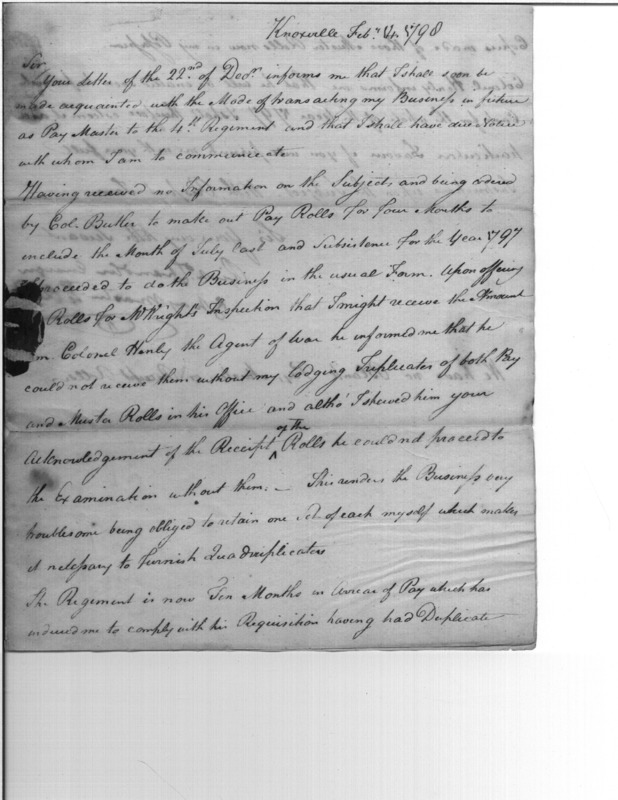 Knoxville Feb.y 1798
Sir
Your letter of the 22nd of Decr informs me that I shall soon be
made acquainted with the Mode of transacting my Business in future
as Pay Master to the 4th Regiment and that I shall have due Notice
with whom I am to communicate
Having received no Information on the Subject and being ordered
by Col. Butler to make out Pay Rolls for four Months to
include the Month of July last and Subsistence for the Year 1797
proceeded to do the Business in the usual Form. Upon offering
Rolls for Mr Wright's Inspection that I might receive the Amount
Colonel Henly the Agent of War he informed me that he
could not receive them without my lodging Triplicates of both Pay
and Muster Rolls in his Office and altho' I shewed him your
acknowledgement of the Receipt of the Rolls he could not proceed to
the Examination without them. — This renders the Business very
troublesome being obliged to retain one Set of each myself which makes
it necessary to furnish Quadruplicates
The Regiment is now Ten Months in Arrear of Pay which has
induced me to comply with his Requisition having had Duplicate